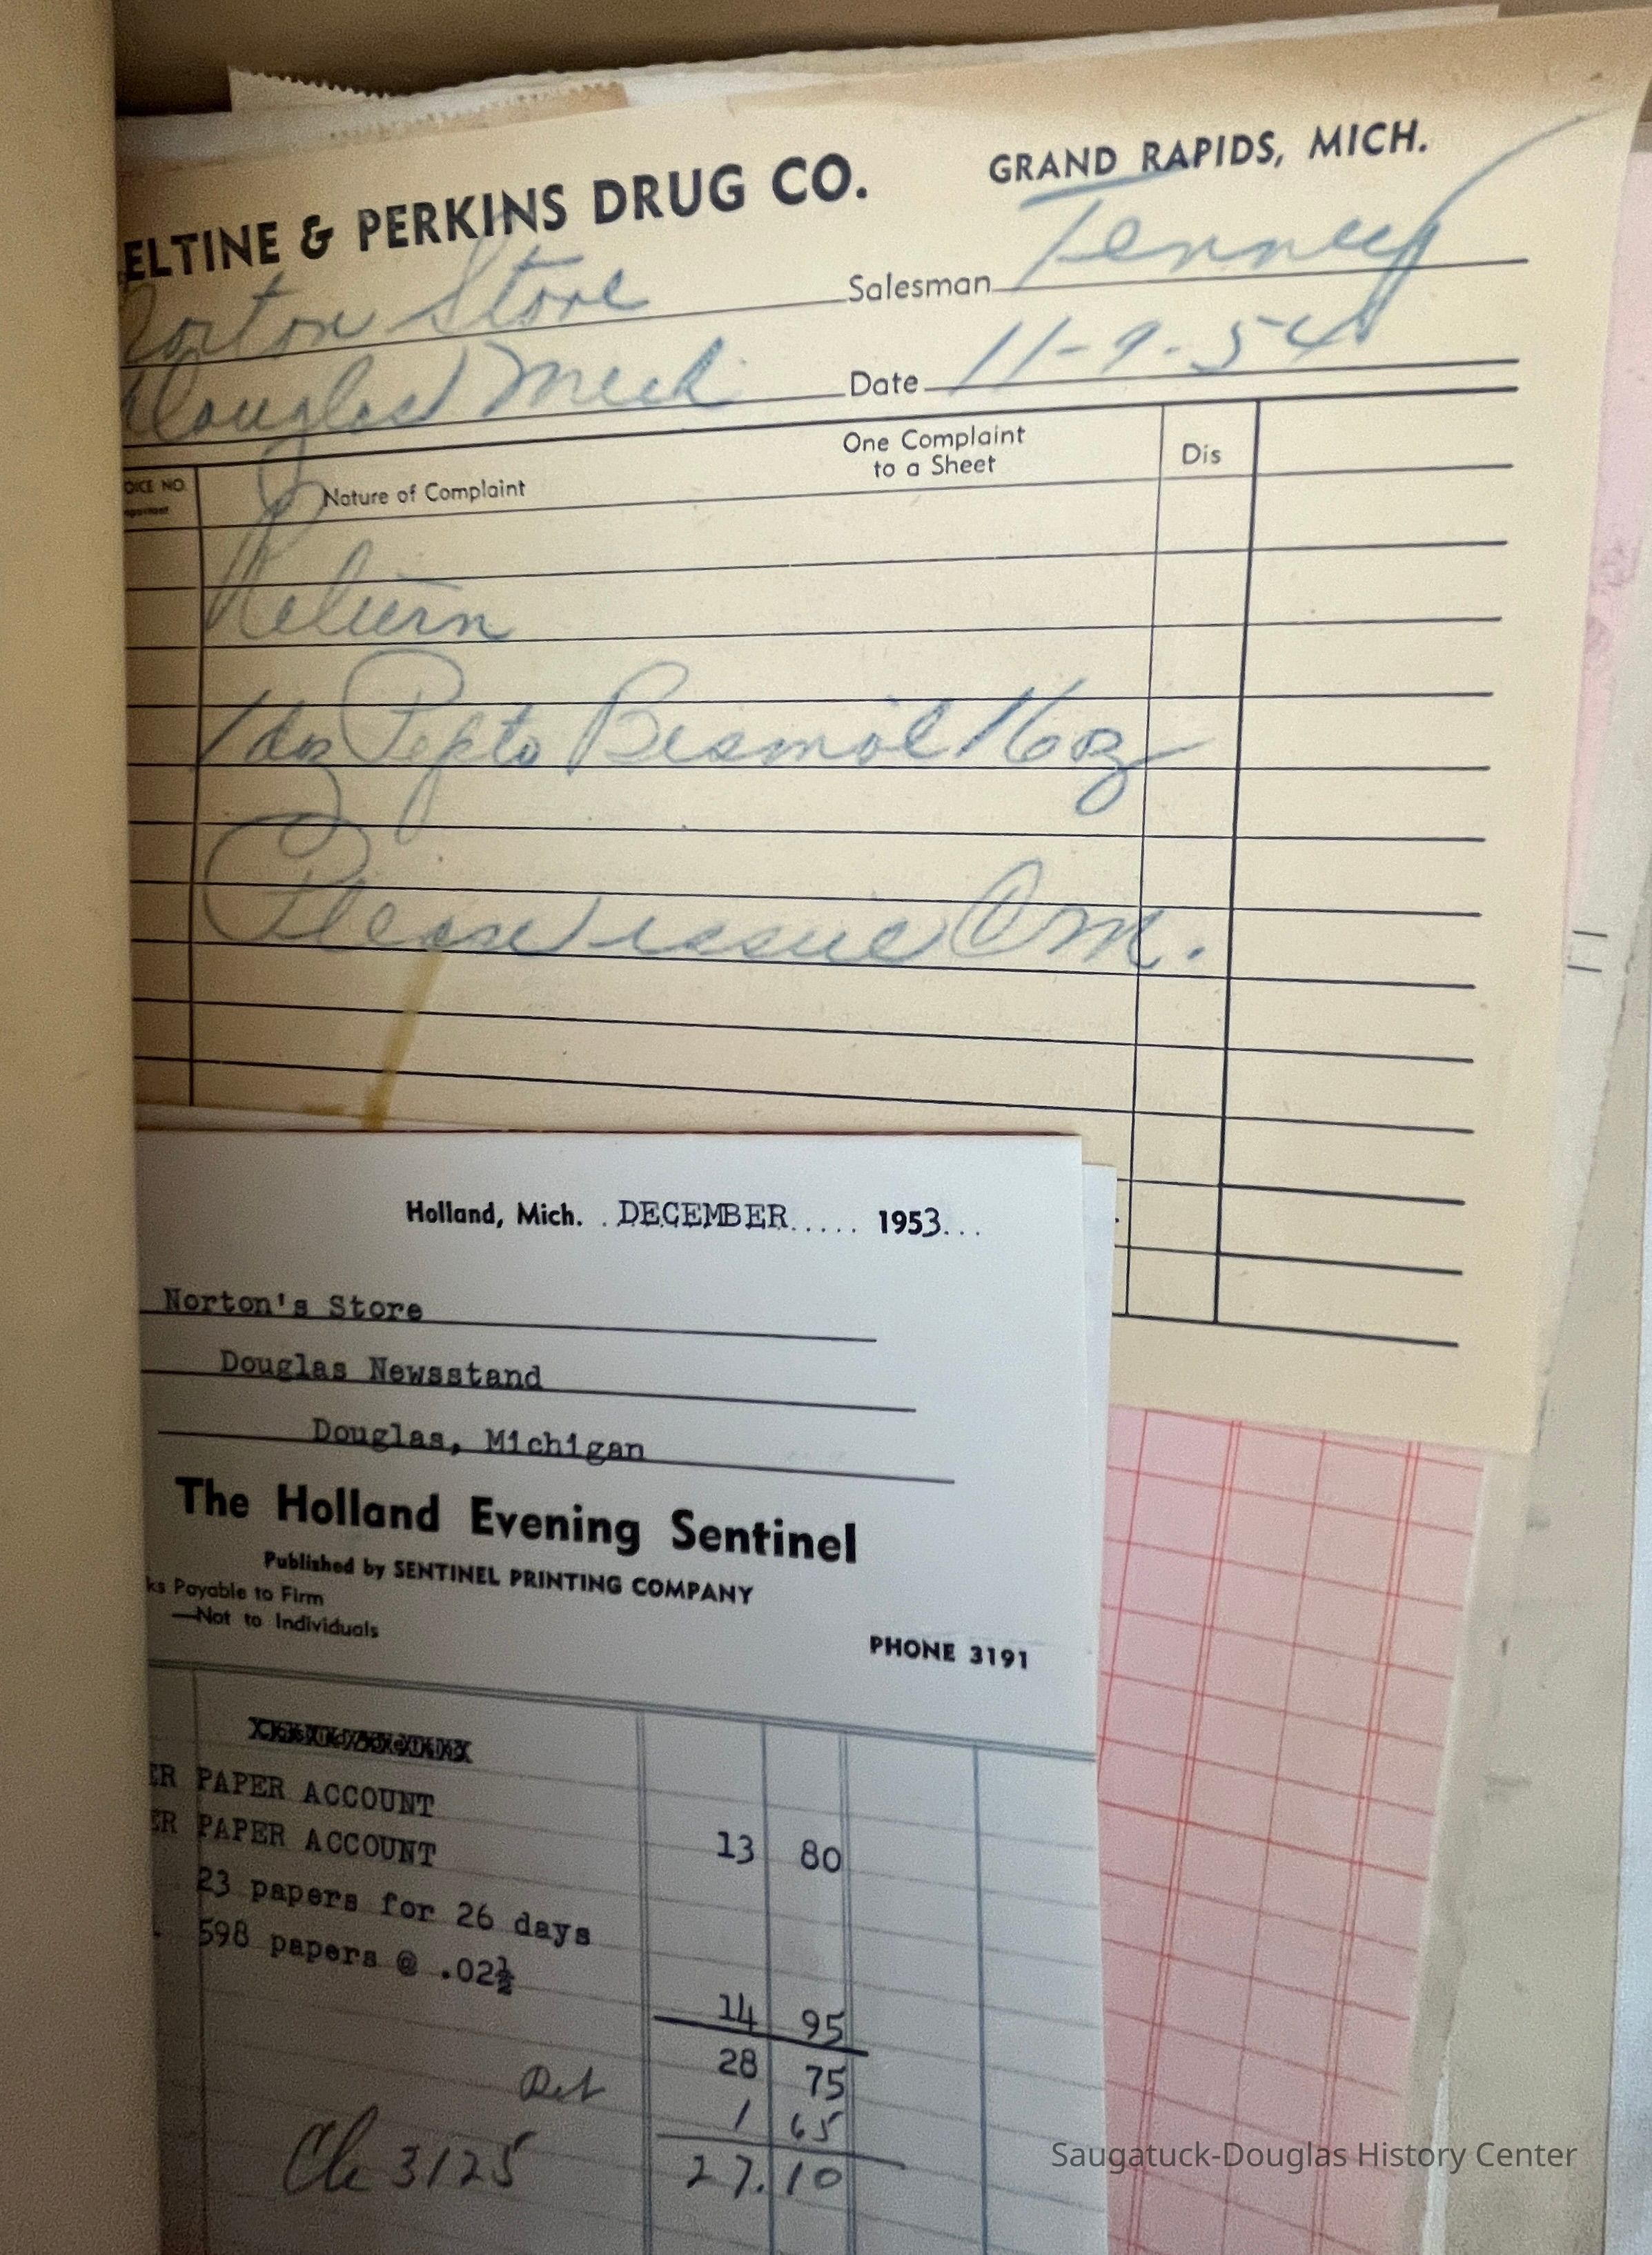 ELTINE & PERKINS DRUG CO. GRAND RAPIDS, MICH.
Norton Store Salesman Tenney
Douglas Mich Date 11-9-54
OICE NO. Nature of Complaint One Complaint to a Sheet Dis
Return
1 doz Pepto Bismol 16 oz
Please issue CM.
Holland, Mich. . DECEMBER ..... 1953...
Norton's Store
Douglas Newsstand
Douglas, Michigan
The Holland Evening Sentinel
Published by SENTINEL PRINTING COMPANY
ks Payable to Firm
—Not to Individuals
PHONE 3191
ER PAPER ACCOUNT
ER PAPER ACCOUNT 13 80
23 papers for 26 days
598 papers @ .02½
14 95
28 75
Ret 1 65
Ck 3125 27.10
Saugatuck-Douglas History Center